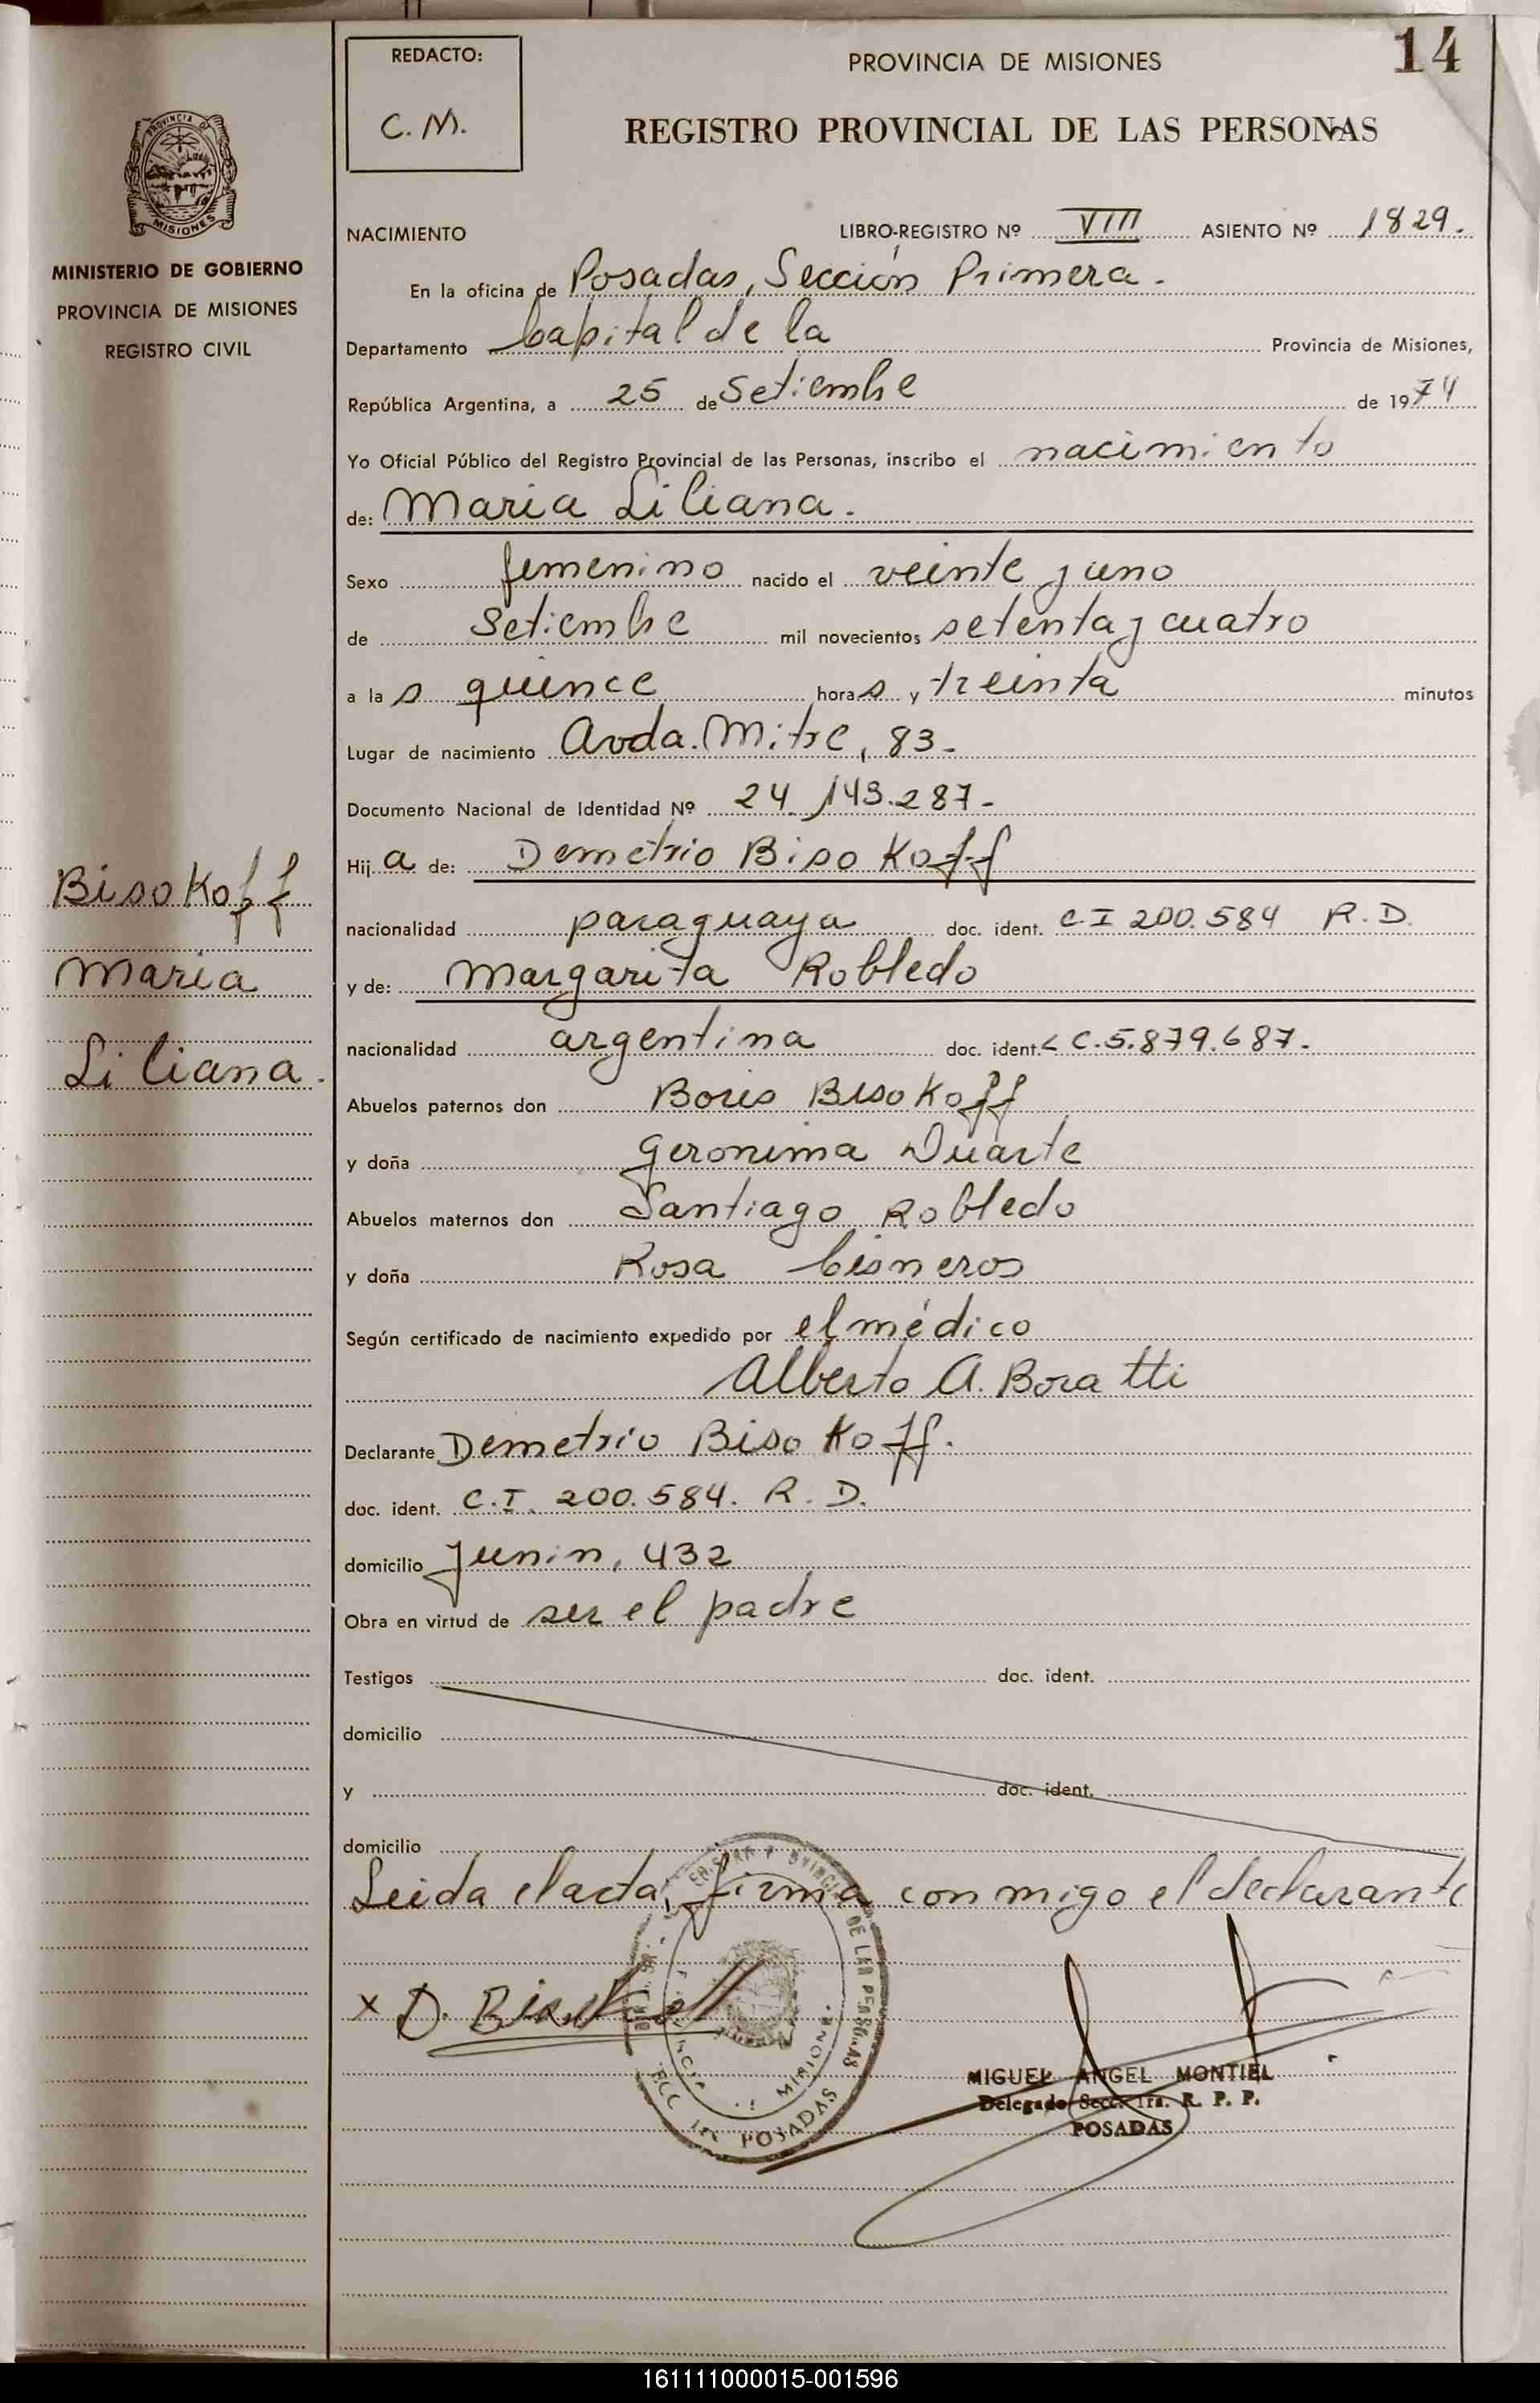 14
REDACTO:
C. M.
PROVINCIA DE MISIONES
REGISTRO PROVINCIAL DE LAS PERSONAS
PROVINCIA DE
MISIONES
MINISTERIO DE GOBIERNO
PROVINCIA DE MISIONES
REGISTRO CIVIL
NACIMIENTO LIBRO-REGISTRO Nº VIII ASIENTO Nº 1829.
En la oficina de Posadas, Sección Primera.
Departamento Capital de la Provincia de Misiones,
República Argentina, a 25 de Setiembre de 1974
Yo Oficial Público del Registro Provincial de las Personas, inscribo el nacimiento
de: Maria Liliana.
Sexo femenino nacido el veinte y uno
de Setiembre mil novecientos setenta y cuatro
a la s quince hora s y treinta minutos
Lugar de nacimiento Avda. Mitre, 83-
Documento Nacional de Identidad Nº 24.143.287-
Hij a de: Demetrio Bisokoff
nacionalidad paraguaya doc. ident. C.I 200.584 R.D.
y de: Margarita Robledo
nacionalidad argentina doc. ident. L C.5.879.687.
Abuelos paternos don Boris Bisokoff
y doña Geronima Duarte
Abuelos maternos don Santiago Robledo
y doña Rosa Cisneros
Según certificado de nacimiento expedido por el médico
Alberto A. Boratti
Declarante Demetrio Bisokoff.
doc. ident. C.I. 200.584. R. D.
domicilio Junin, 432
Obra en virtud de ser el padre
Testigos doc. ident.
domicilio
y doc. ident.
domicilio
Leida el acta, firma conmigo el declarante
Bisokoff
Maria
Liliana.
x D. Bisokoff
DE LAS PERSONAS
MISIONES
POSADAS
MIGUEL ANGEL MONTIEL
Delegado Secc. 1ra. R. P. P.
POSADAS
161111000015-001596